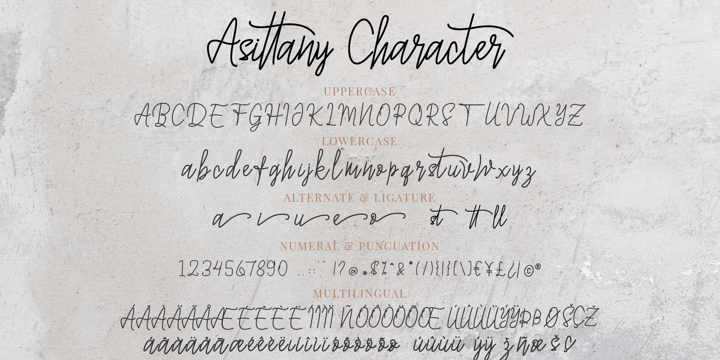 Asittany Character
UPPERCASE
ABCDEFGHIJKLMNOPQRSTUVWXYZ
LOWERCASE
abcdefghijklmnopqrstuvwxyz
ALTERNATE & LIGATURE
a i u e o st tt ll
NUMERAL & PUNCUATION
1234567890 ..:;¨ !?@„$%^&*(/)[]{\}€¥£¿¡©®
MULTILINGUAL
ÀÁÂÄÃÅÆÈÉÊËÌÍÎÏÑÒÓÔÖÕŒÙÚÛÜÝŸÞÐØŠÇŽ